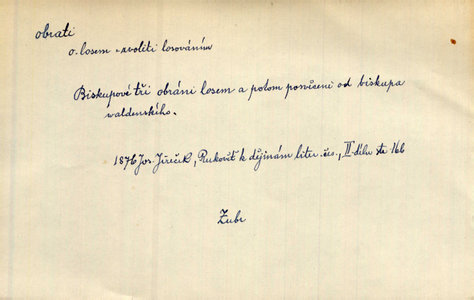 obrati
o. losem = zvoliti losováním
Biskupové tři obráni losem a potom povýšeni od biskupa
valdenského.
1876 Jos. Jireček, Rukověť k dějinám liter. čes., II. dílu str. 166
Zubr